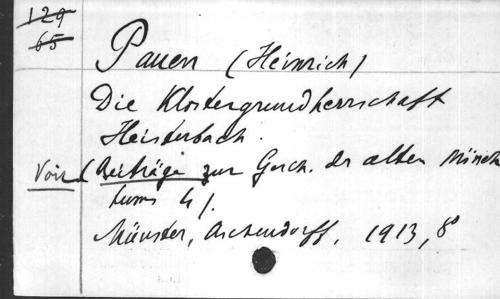 129
65
Pauen (Heinrich)
Die Klostergrundherrschaft
Heisterbach.
Voir (Beiträge zur Gesch. der alten Mönch
tums 4).
Münster, Aschendorff, 1913, 8°